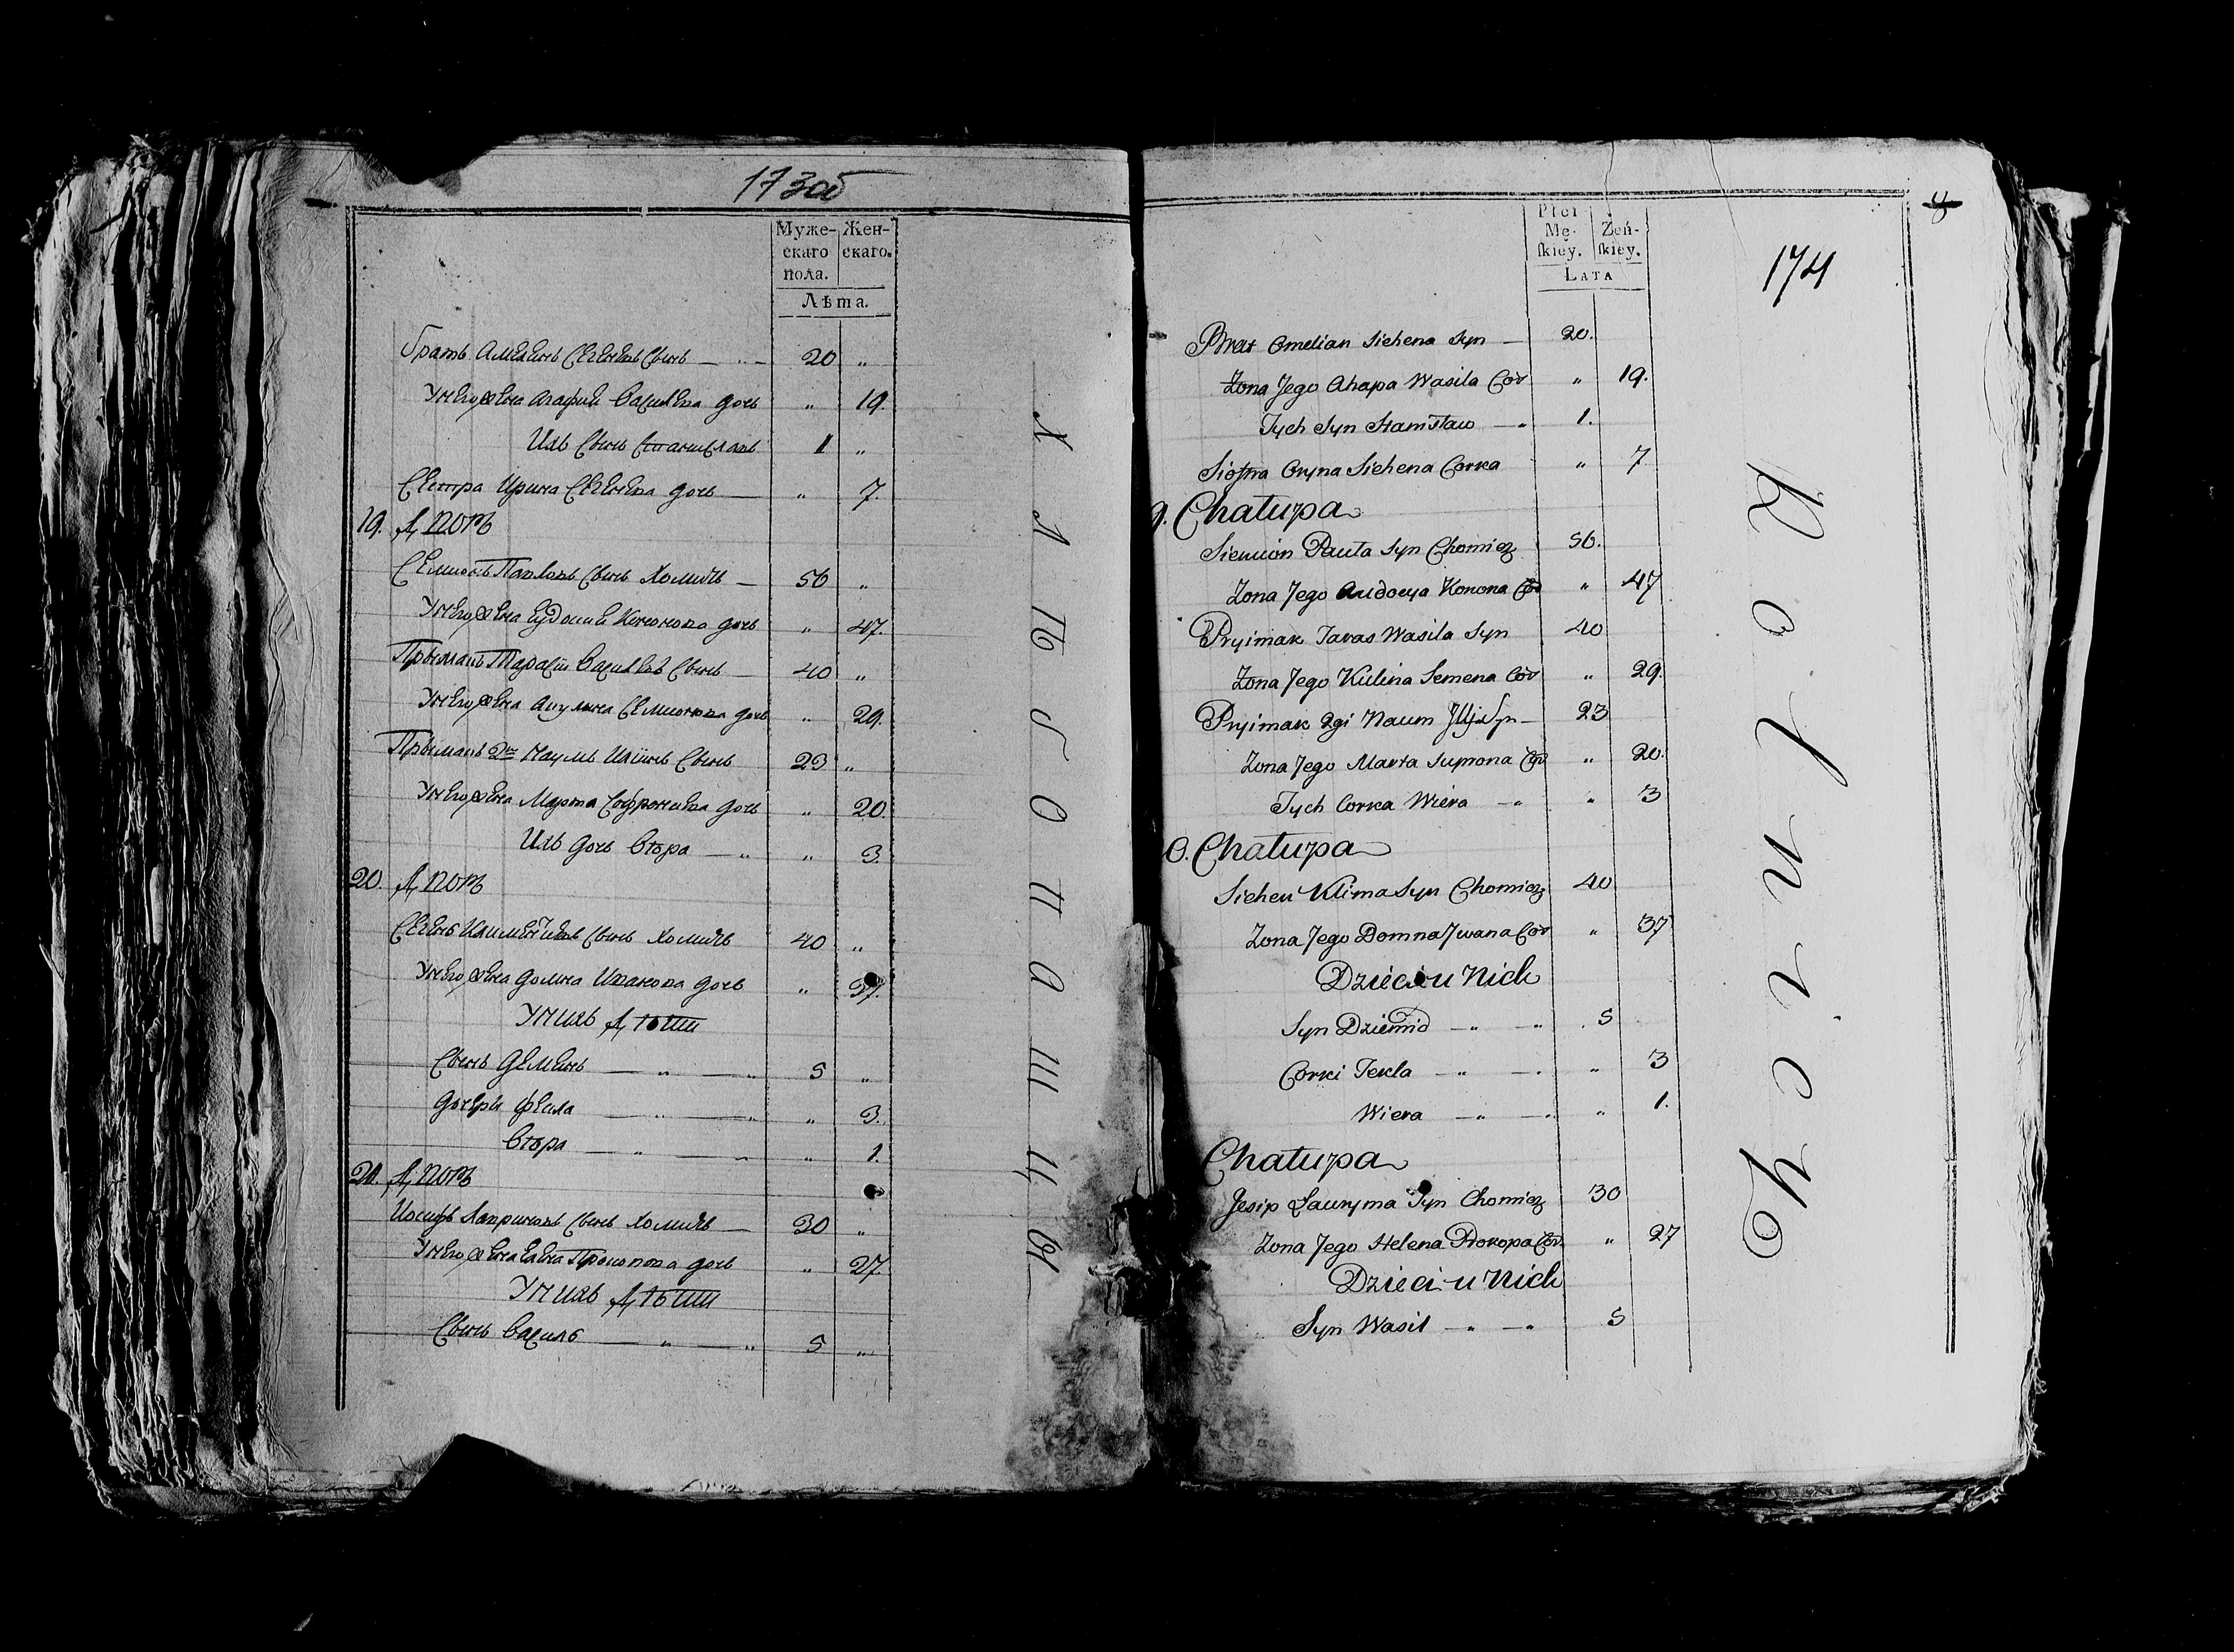 173об
Муже- Жен-
скаго скаго.
пола.
Лѣта.
братъ Амелянъ Сегеневъ сынъ — 20 „
У него жена Агафия Василева дочь „ 19.
Ихъ сынъ Станиславъ 1 „
Сестра Ирина Сегенева дочь — „ 7.
19. Дворъ
Семионъ Павловъ сынъ Хомичъ — 56 „
У него жена Евдокия Кононова дочь „ 47.
Прымакъ Тарасъ Васильевъ сынъ — 40 „
У него жена Акулина Семионова дочь „ 29.
Прымакъ 2й Наумъ Ильинъ сынъ 23 „
У него жена Марта Софрониева дочь „ 20.
Ихъ дочь Вѣра — „ „ 3.
20. Дворъ
Сегень Климентиевъ сынъ Хомичъ 40 „
У него жена Домна Иванова дочь „ 37.
У нихъ Дѣти
Сынъ Деминъ — „ — „ 5 „
Дочери Фекла — „ — „ „ 3.
Вѣра — „ — „ „ 1.
21. Дворъ
Иосифъ Лавриновъ сынъ Хомичъ — 30 „
У него жена Елена Прокопова дочь „ 27.
У нихъ Дѣти
Сынъ Василь — „ — „ 5 „
Płci
Mę- Żeń-
skiey. skiey.
LATA
174
Brat Omelian Siehena Syn — 20.
Żona Jego Ahapa Wasila Cór „ 19.
Tych Syn Stanisław — „ 1.
Siostra Oryna Siehena Corka „ 7
9. Chałupa
Siemion Pauła Syn Chomicz 56.
Żona Jego Audocya Konona Cór „ 47
Pryimak Taras Wasila Syn 40
Żona Jego Kulina Semena Cór „ 29.
Pryimak 2gi Naum Illji Syn — 23
Żona Jego Marta Suprona Cór „ 20.
Tych Corka Wiera — „ „ 3
0. Chałupa
Siehen Klima Syn Chomicz 40
Żona Jego Domna Jwana Cór „ 37
Dzieci u Nich
Syn Dziemid — „ — „ 5
Corki Tekla — „ — „ „ 3
Wiera — „ — „ „ 1.
Chałupa
Jesip Łauryma Syn Chomicz 30
Żona Jego Helena Prokopa Cór „ 27
Dzieci u Nich
Syn Wasil — „ — „ 5
Kołnicy